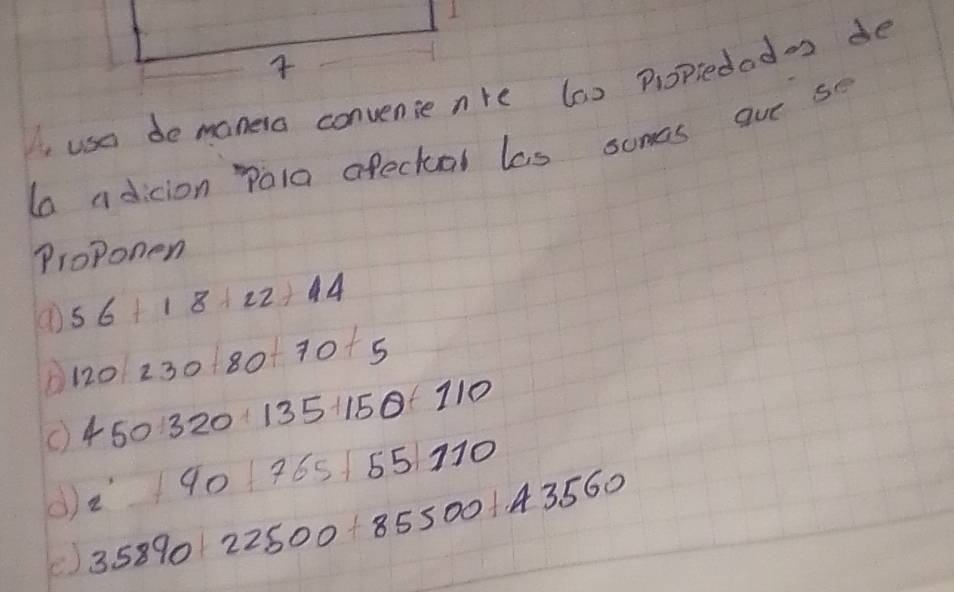 7
1. usa de manera conveniente las Propiedades de
la adicion Para afectuar las sumas que se
Proponen
a) 56 + 18 + 22 + 44
b) 120 + 230 + 80 + 70 + 5
c) 450 + 320 + 135 + 150 + 110
d) 2 + 90 + 765 + 55 + 110
e) 35890 + 22500 + 85500 + 43560